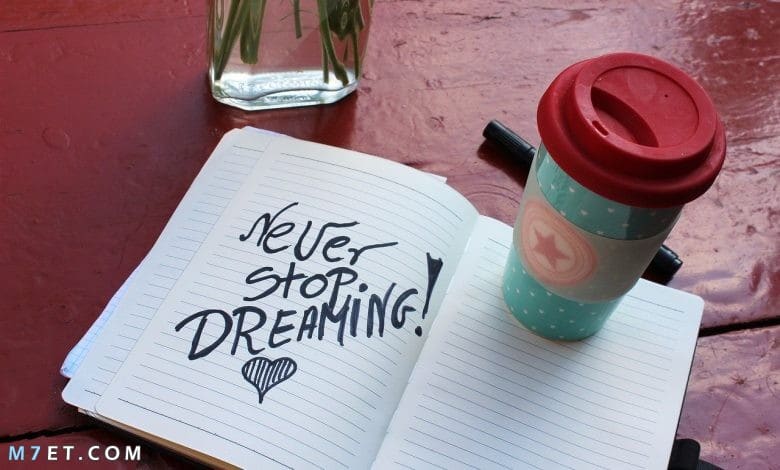 Never
Stop
DREAMING!
M7ET.COM